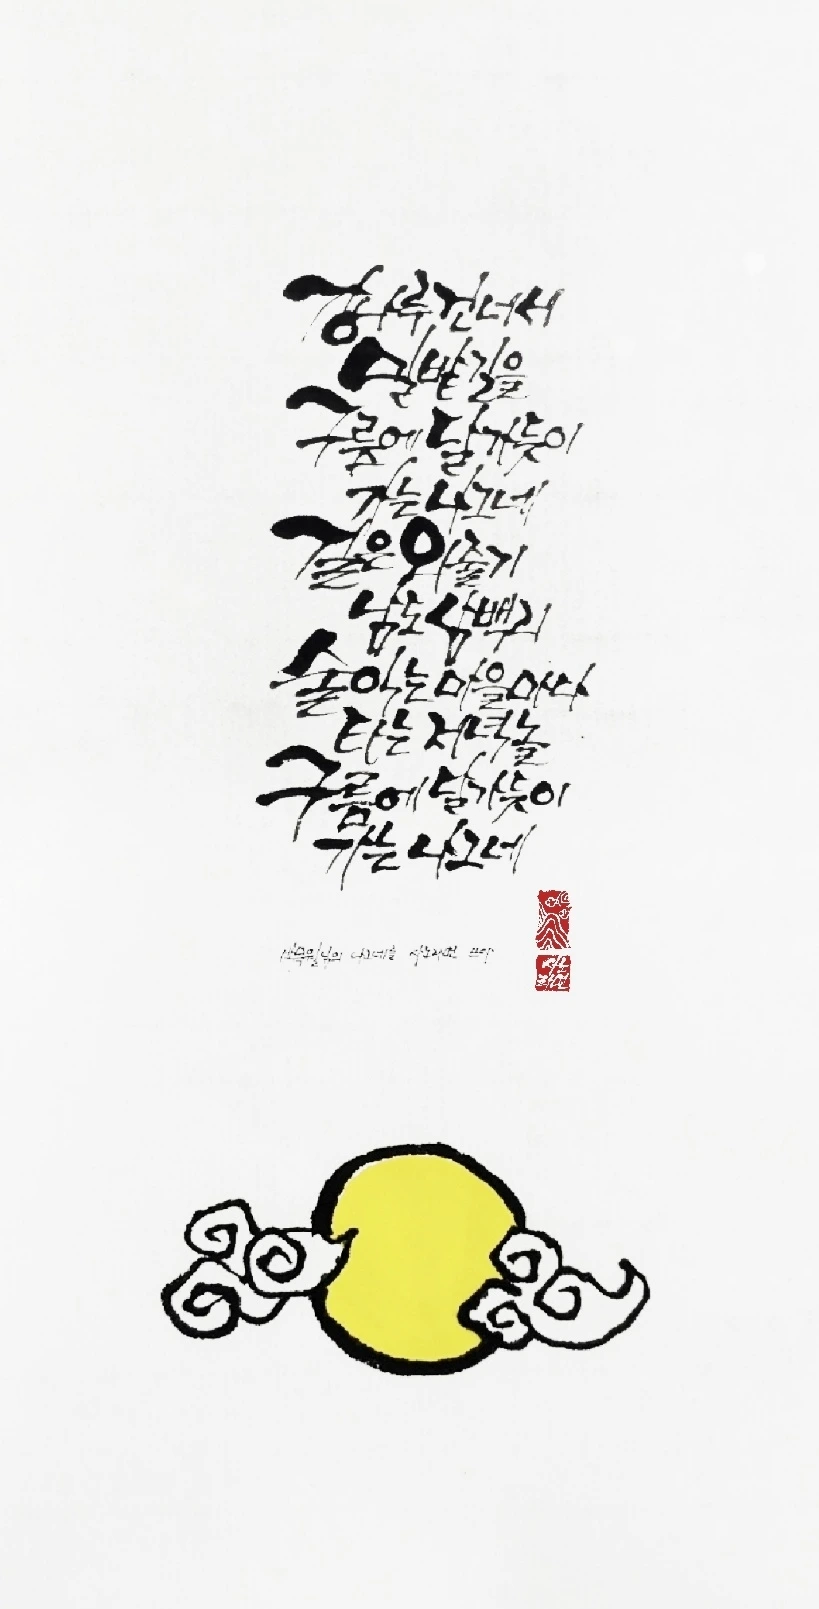 강나루 건너서
밀밭길을
구름에 달가듯이
가는 나그네
길은 외줄기
남도 삼백리
술익는 마을마다
타는 저녁놀
구름에 달가듯이
가는 나그네
박목월님의 나그네를